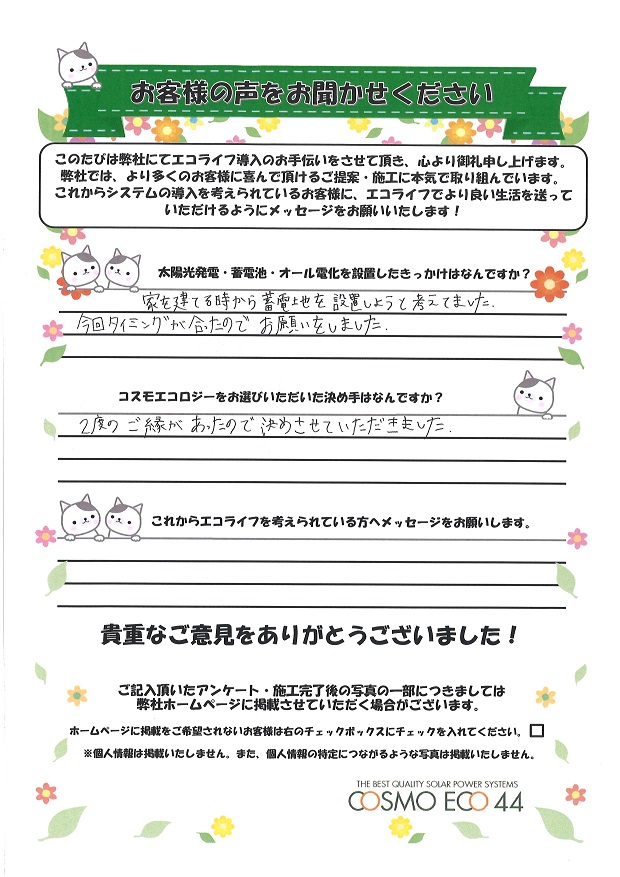 お客様の声をお聞かせください
このたびは弊社にてエコライフ導入のお手伝いをさせて頂き、心より御礼申し上げます。
弊社では、より多くのお客様に喜んで頂けるご提案・施工に本気で取り組んでいます。
これからシステムの導入を考えられているお客様に、エコライフでより良い生活を送って
いただけるようにメッセージをお願いいたします！
太陽光発電・蓄電池・オール電化を設置したきっかけはなんですか？
家を建てる時から蓄電池を設置しようと考えてました.
今回タイミングが合ったのでお願いをしました.
コスモエコロジーをお選びいただいた決め手はなんですか？
2度のご縁があったので決めさせていただきました.
これからエコライフを考えられている方へメッセージをお願いします。
貴重なご意見をありがとうございました！
ご記入頂いたアンケート・施工完了後の写真の一部につきましては
弊社ホームページに掲載させていただく場合がございます。
ホームページに掲載をご希望されないお客様は右のチェックボックスにチェックを入れてください。
※個人情報は掲載いたしません。また、個人情報の特定につながるような写真は掲載いたしません。
THE BEST QUALITY SOLAR POWER SYSTEMS
COSMO ECO 44